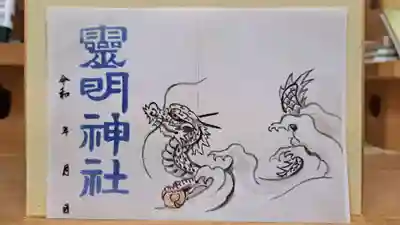 靈明神社
令和 年 月 日